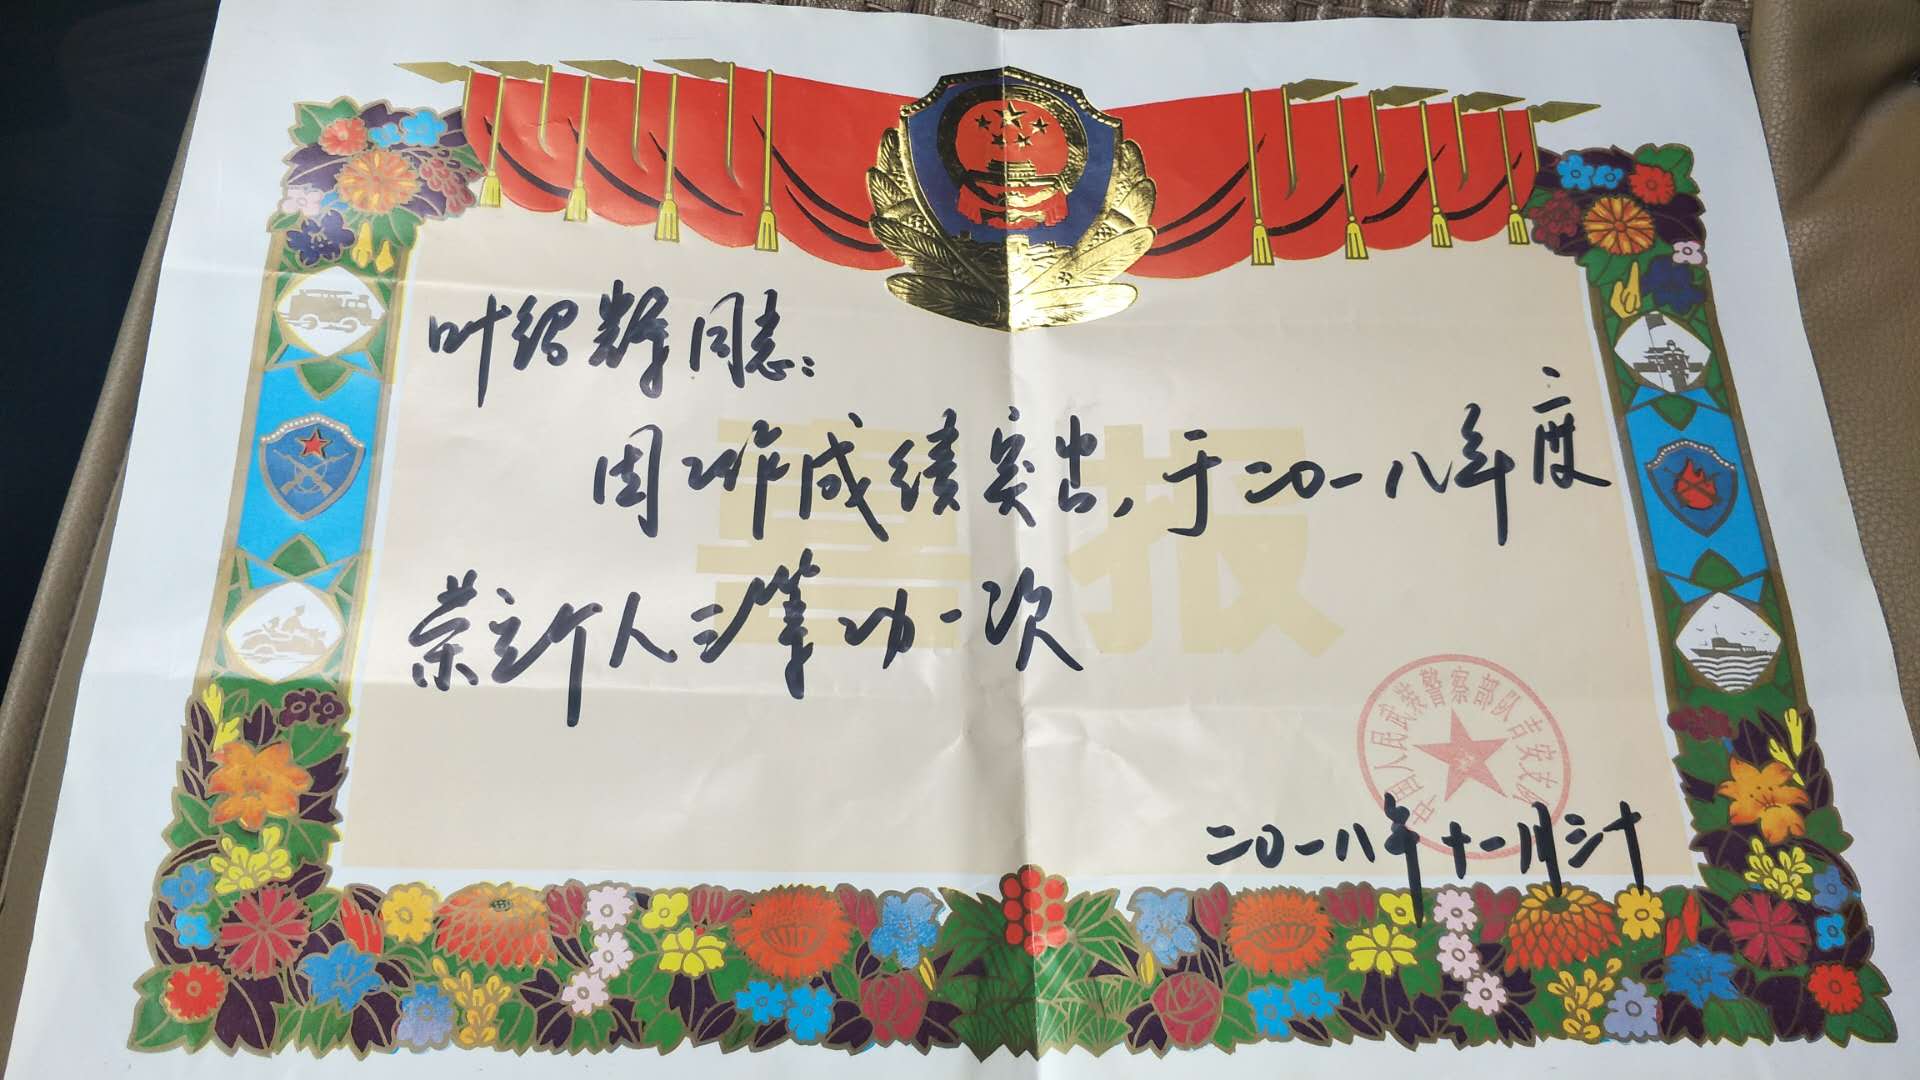 叶绍辉同志:
因工作成绩突出,于二〇一八年二度
荣立个人三等功一次
喜报
中国人民武装警察部队吉安支队
二〇一八年十一月三十